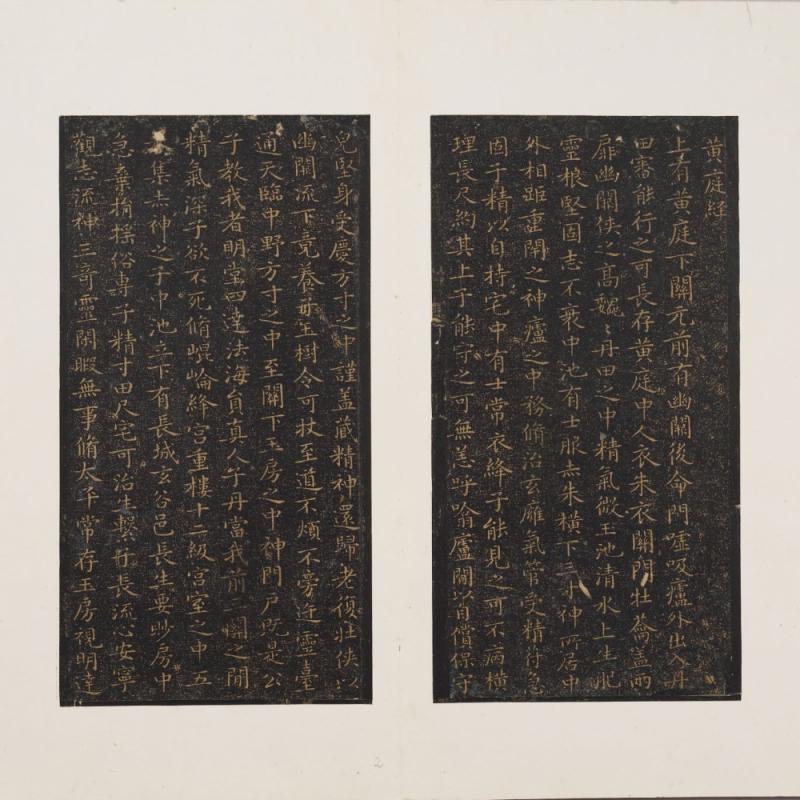 黄庭経
上有黄庭下關元前有幽闕後命門噓吸廬外出入丹
田審能行之可長存黄庭中人衣朱衣關門壮蘥盖兩
扉幽闕侠之髙魏〻丹田之中精氣微玉池清水上生肥
靈根堅固志不衰中池有士服赤朱横下三寸神所居中
外相距重閉之神廬之中務脩治玄癕氣管受精符急
固子精以自持宅中有士常衣絳子能見之可不病横
理長尺約其上子能守之可無恙呼噏廬間以自償保守
皃堅身受慶方寸之中謹盖藏精神還歸老復壮侠以
幽闕流下竟養子玉樹令可杖至道不煩不旁迕靈臺
通天臨中野方寸之中至關下玉房之中神門户既是公
子教我者明堂四達法海員真人子丹當我前三關之間
精氣深子欲不死脩崐崘絳宫重樓十二級宫室之中五
集赤神之子中池立下有長城玄谷邑長生要眇房中
急棄捐摇俗専子精寸田尺宅可治生繫子長流心安寧
觀志流神三竒靈閑暇無事脩太平常存玉房視明達
2